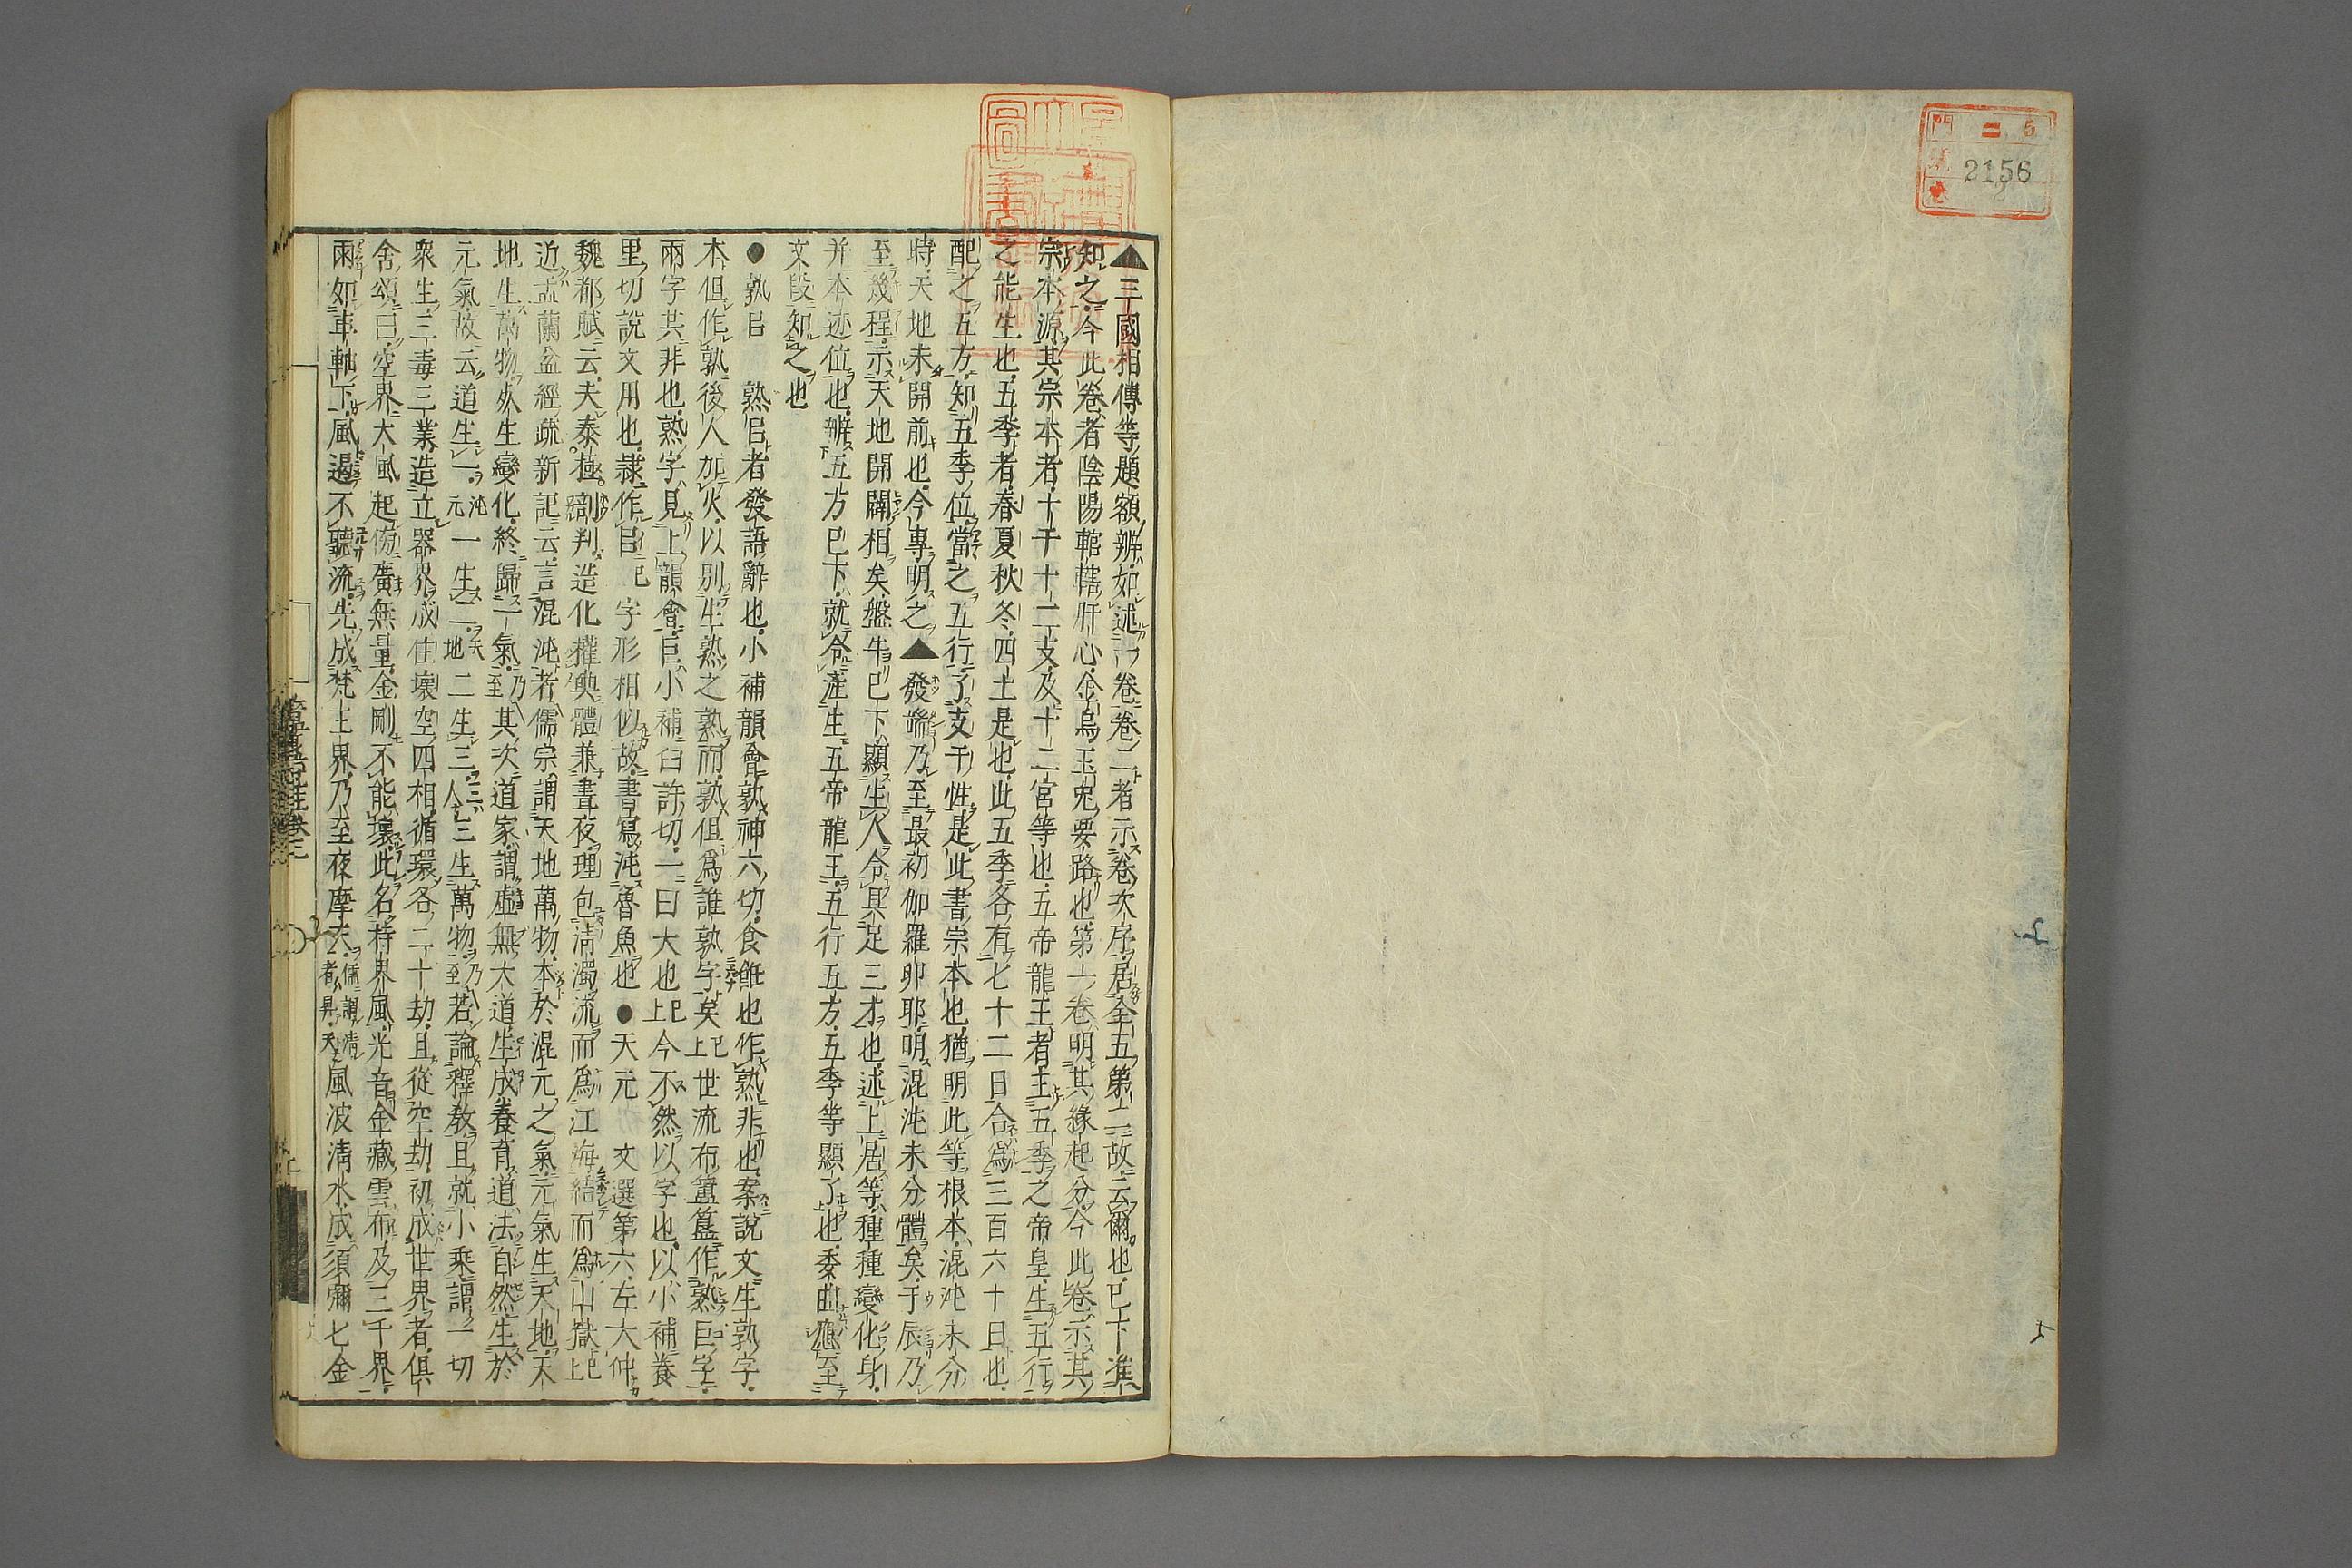 門 二 5
號 2156
卷 2
▲三國相傳等題額辨如述卷卷二者示卷次序居全五第二故云爾也已下準
知之今此卷者陰陽輨轄肝心金烏玉兔要路也第一卷明其緣起分今此卷示其
宗本源其宗本者十干十二支及十二宮等也五帝龍王者主五季之帝皇生五行
之能生也五季者春夏秋冬四土是也此五季各有七十二日合爲三百六十日也
配之五方知五季位當之五行了支干性是此書宗本也猶明此等根本混沌未分
時天地未開前也今專明之▲發端乃至最初伽羅卵耶明混沌未分體矣于辰乃
至幾程示天地開闢相矣盤牛已下顯生人令具足三才也述上居等種種變化身
并本迹位也辨五方已下就令產生五帝龍王五行五方五季等顯了也委曲應至
文段知之也
●孰㠯 熟㠯者發語辭也小補韻會孰神六切食飪也作熟非也案說文生孰字
本但作孰後人加火以別生熟之熟而孰但爲誰孰字矣已上世流布簠簋作熟巨字
兩字共非也熟字見上韻會巨小補臼許切一曰大也已上今不然以字也以小補養
里切說文用也隷作㠯已字形相似故書寫沌魯魚也●天元 文選第六左大仲
魏都賦云夫泰極剖判造化權輿體兼晝夜理包淸濁流而爲江海結而爲山嶽已上
近盂蘭盆經疏新記云言混沌者儒宗謂天地萬物本於混元之氣元氣生天地天
地生萬物必生變化終歸一氣乃至其次道家謂虛無大道生成養育道法自然生於
元氣故云道生一元沌一生二天地二生三三人三生萬物乃至若論釋教且就小乘謂一切
衆生三毒三業造立器界成住壞空四相循環各二十劫且從空劫初成世界者俱
舍頌曰空界大風起傍廣無量金剛不能壞此名持界風光音金藏雲布及三千界
雨如車軸下風遏不聽流先成梵王界乃至夜摩天儒謂淸者昇天風波淸水成須彌七金